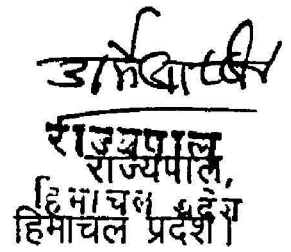 राज्यपाल
राज्यपाल,
हिमाचल प्रदेश
हिमाचल प्रदेश।